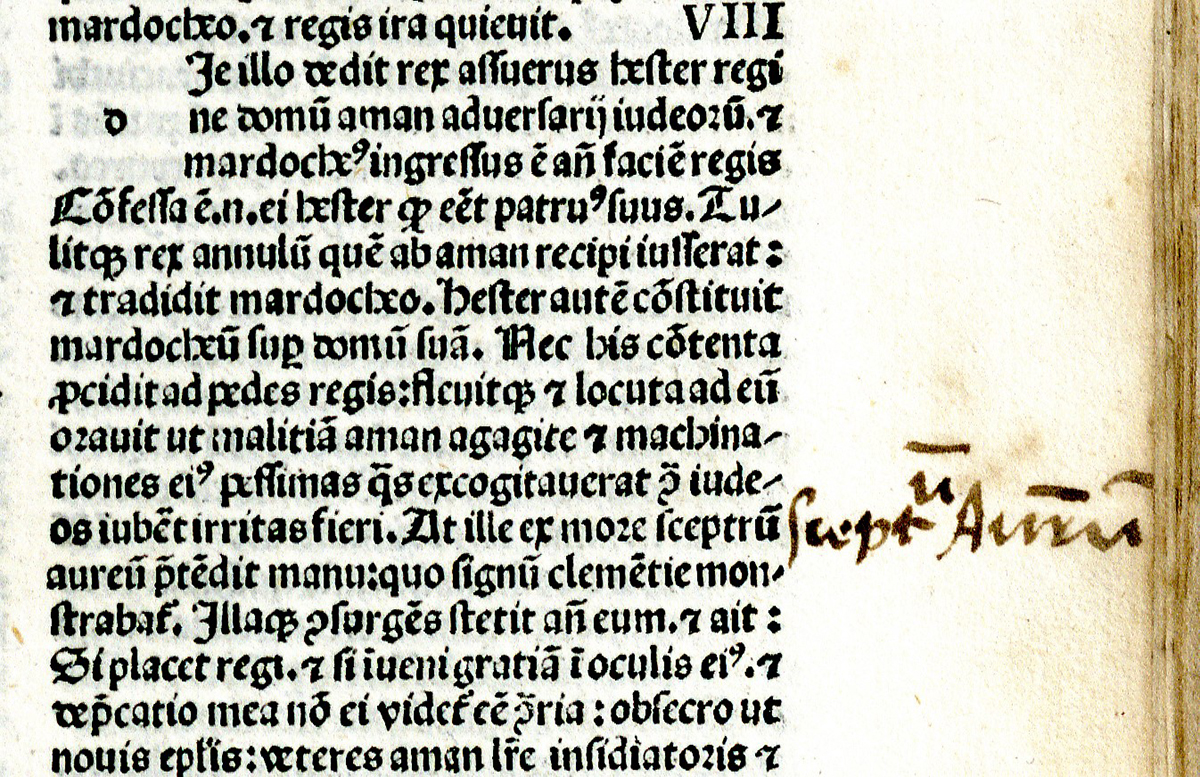 mardocheo.⁊ regis ira quieuit. VIII
Ɉe illo dedit rex assuerus hester regi
d ne domũ aman aduersarij iudeoꝛũ.⁊
mardocheꝰ ingressus ẽ añ faciẽ regis
Cõfessa ẽ.n.ei hester ꝙ eẽt patruꝰ suus. Tu⸗
litqꝫ rex annulũ quẽ ab aman recipi iusserat:
⁊ tradidit mardocheo. Hester autẽ cõstituit
mardocheũ suꝑ domũ suã. Nec his cõtenta
ꝓcidit ad pedes regis: fleuitqꝫ ⁊ locuta ad eũ
oꝛauit ut malitiã aman agagite ⁊ machina⸗
tiones eiꝰ pessimas q̃s excogitauerat ↄ̃ iude⸗
os iubẽt irritas fieri. At ille ex moꝛe sceptrũ
aureũ p̃tẽdit manu: quo signũ clemẽtie mon⸗
strabat̃. Illaqꝫ ↄsurgẽs stetit añ eum.⁊ ait:
Si placet regi.⁊ si ĩueni gratiã ĩ oculis eiꝰ.⁊
dep̃catio mea nõ ei videt̃ eẽ ↄ̃ria: obsecro ut
nouis ep̃lis: veteres aman lr̃e insidiatoꝛis ⁊
Sceptũ Aureũ